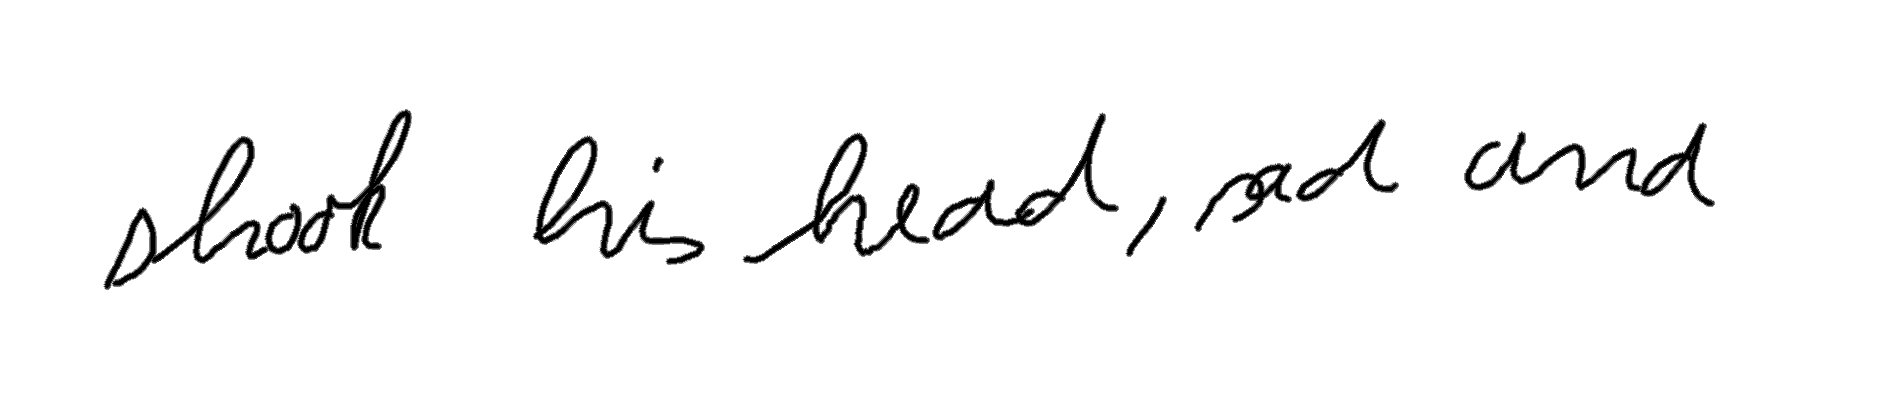 shook his head, sad and